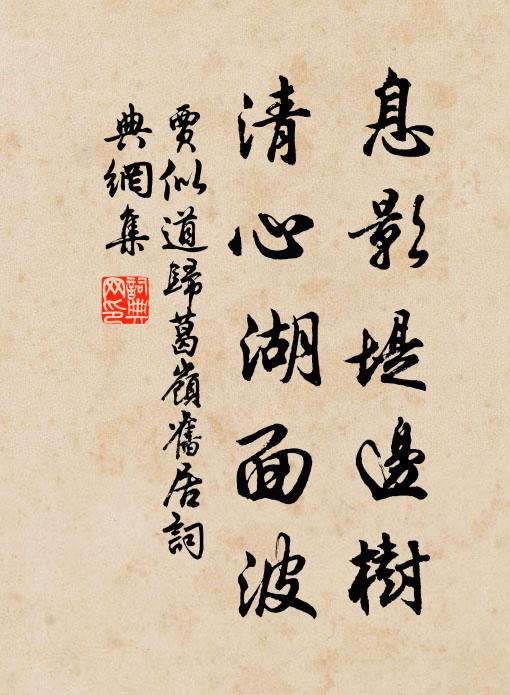 息影堤邊樹
清心湖面波
賈似道歸葛嶺舊居詞
典網集
詞典
网印